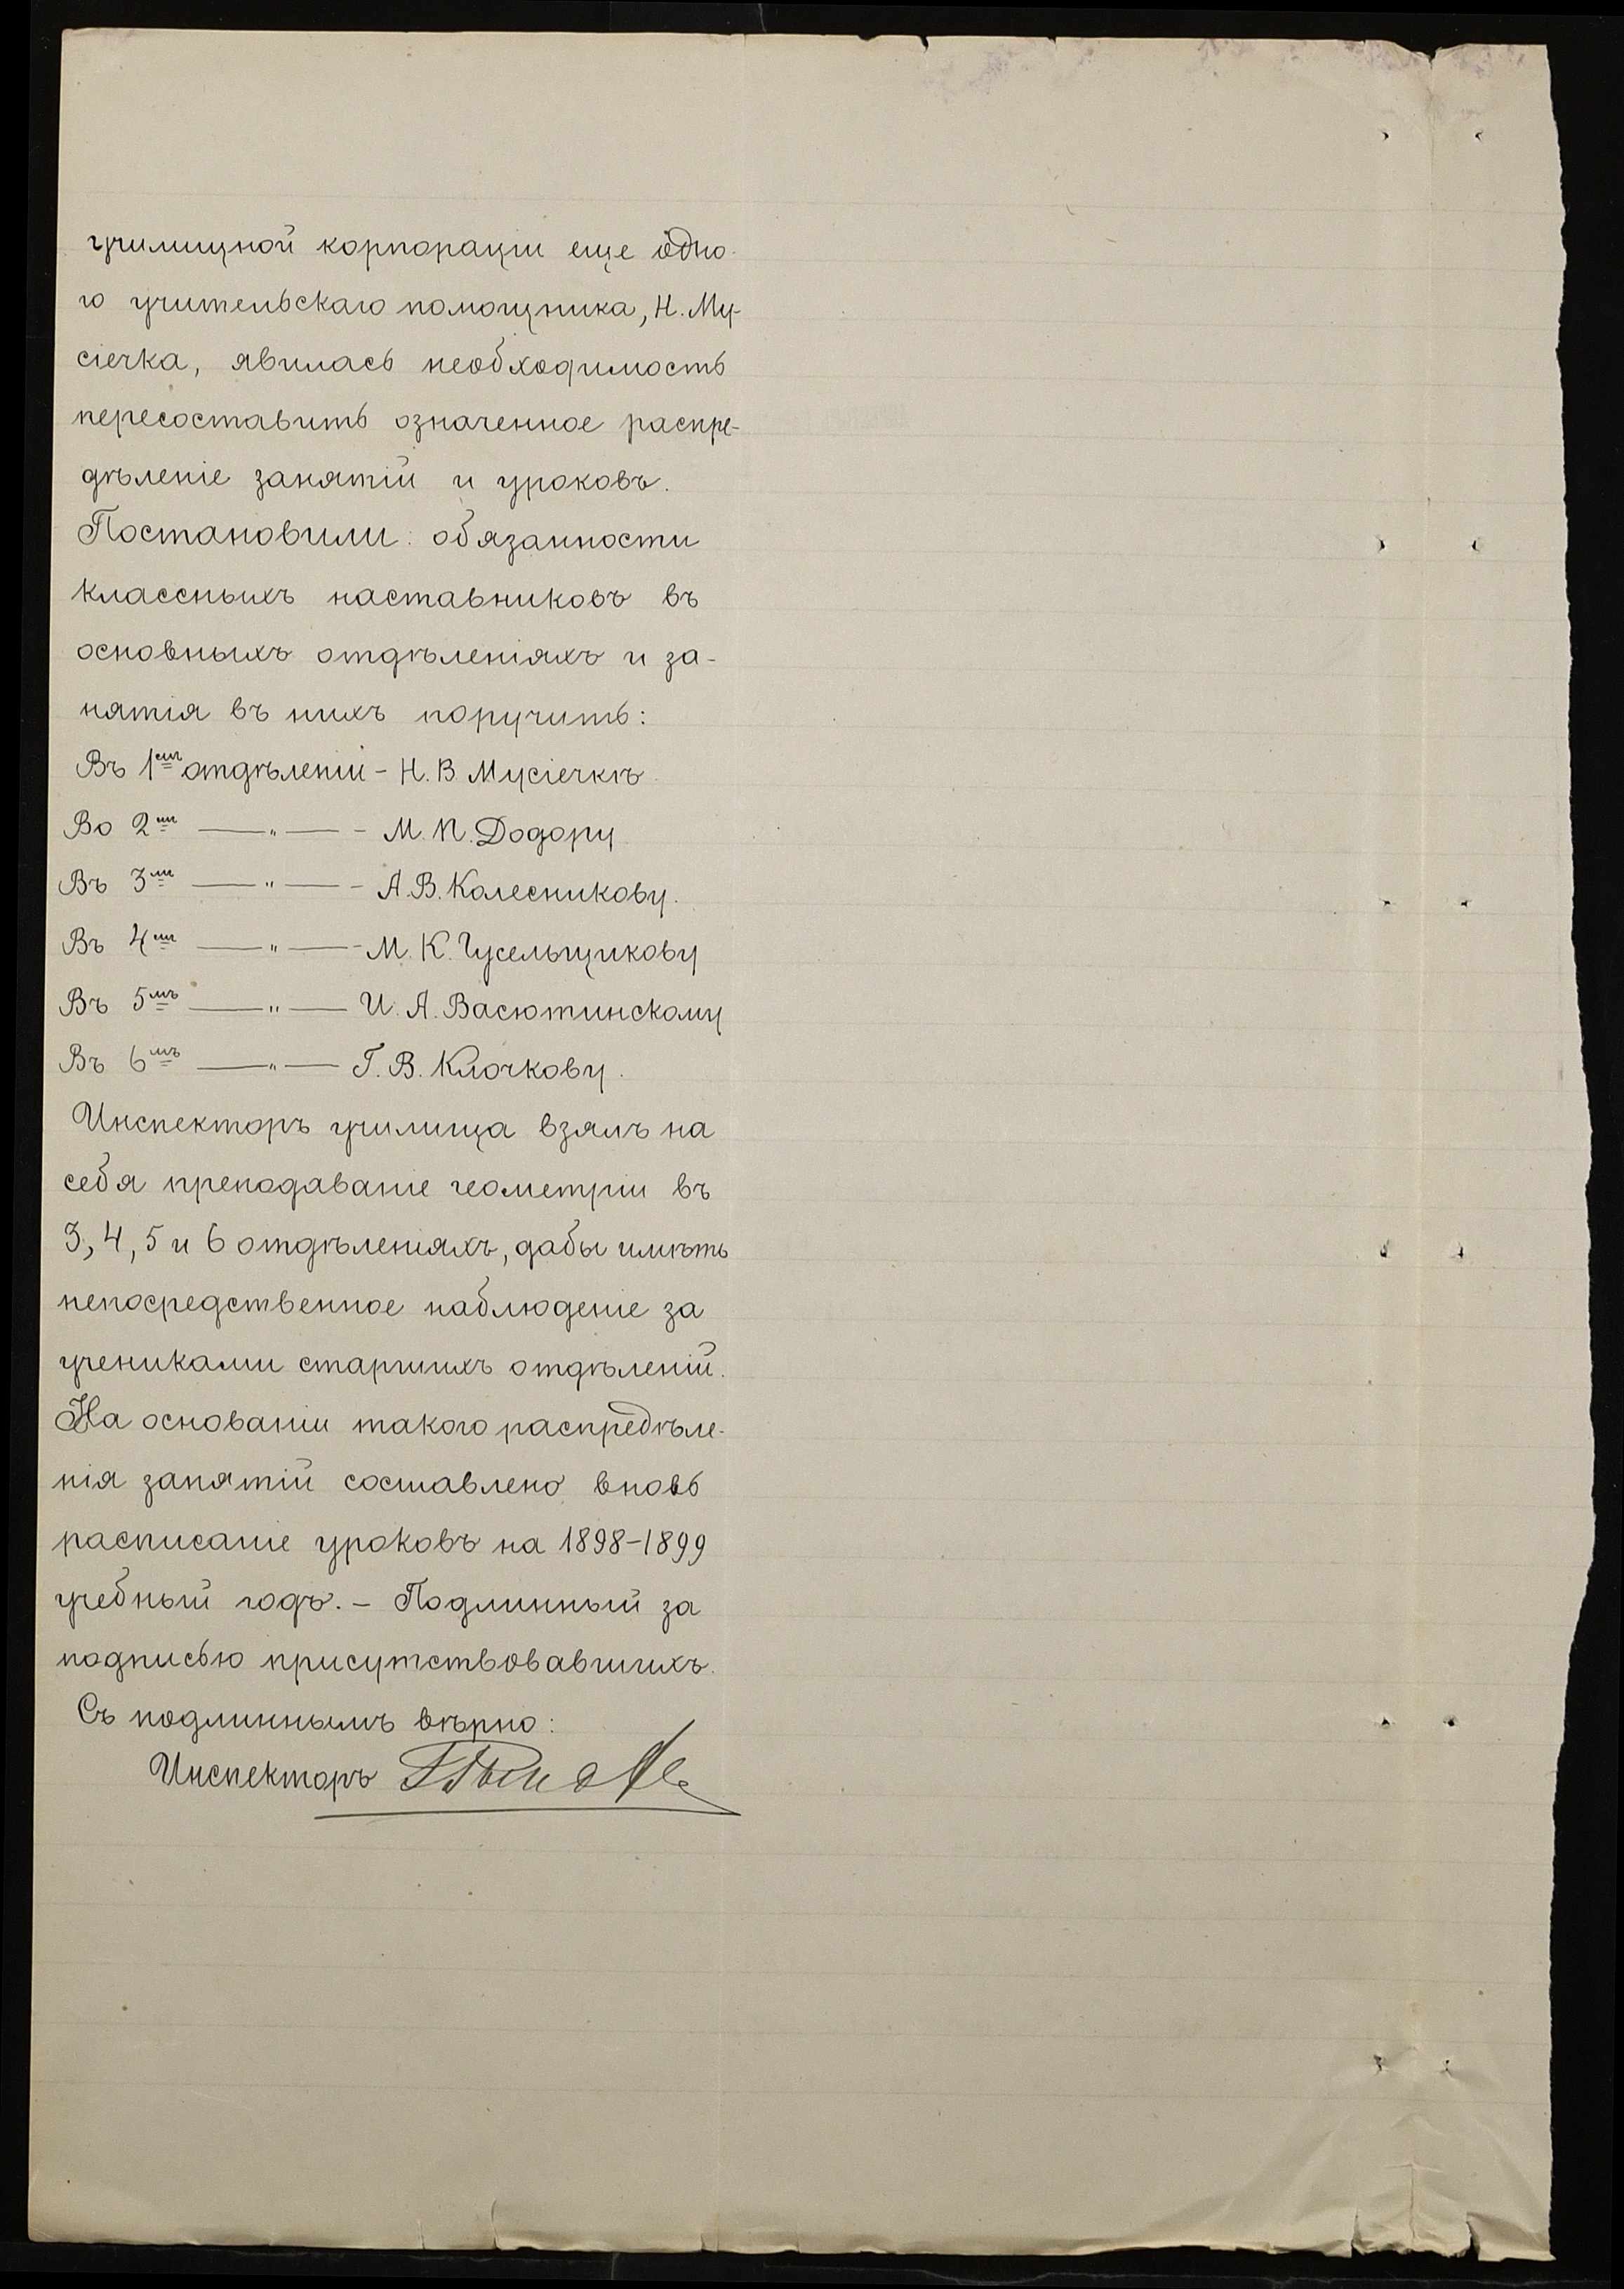 училищной корпораціи еще одно-
го учительскаго помощника, Н. Му-
сіечка, явилась необходимость
пересоставить означенное распре-
дѣленіе занятій и уроковъ.
Постановили: обязанности
классныхъ наставниковъ въ
основныхъ отдѣленіяхъ и за-
нятія въ нихъ поручить:
Въ 1омъ отдѣленіи - Н. В. Мусіечкѣ
Во 2мъ —"— - М. П. Додору
Въ 3мъ —"— - А. В. Колесникову.
Въ 4мъ —"— - М. К. Гусельщикову
Въ 5мъ —"— И. А. Васютинскому
Въ 6мъ —"— Г. В. Клочкову.
Инспекторъ училища взялъ на
себя преподаваніе геометріи въ
3, 4, 5 и 6 отдѣленіяхъ, дабы имѣть
непосредственное наблюденіе за
учениками старшихъ отдѣленій.
На основаніи такого распредѣле-
нія занятій составлено вновь
расписаніе уроковъ на 1898-1899
учебный годъ. - Подлинный за
подписью присутствовавшихъ.
Съ подлиннымъ вѣрно:
Инспекторъ